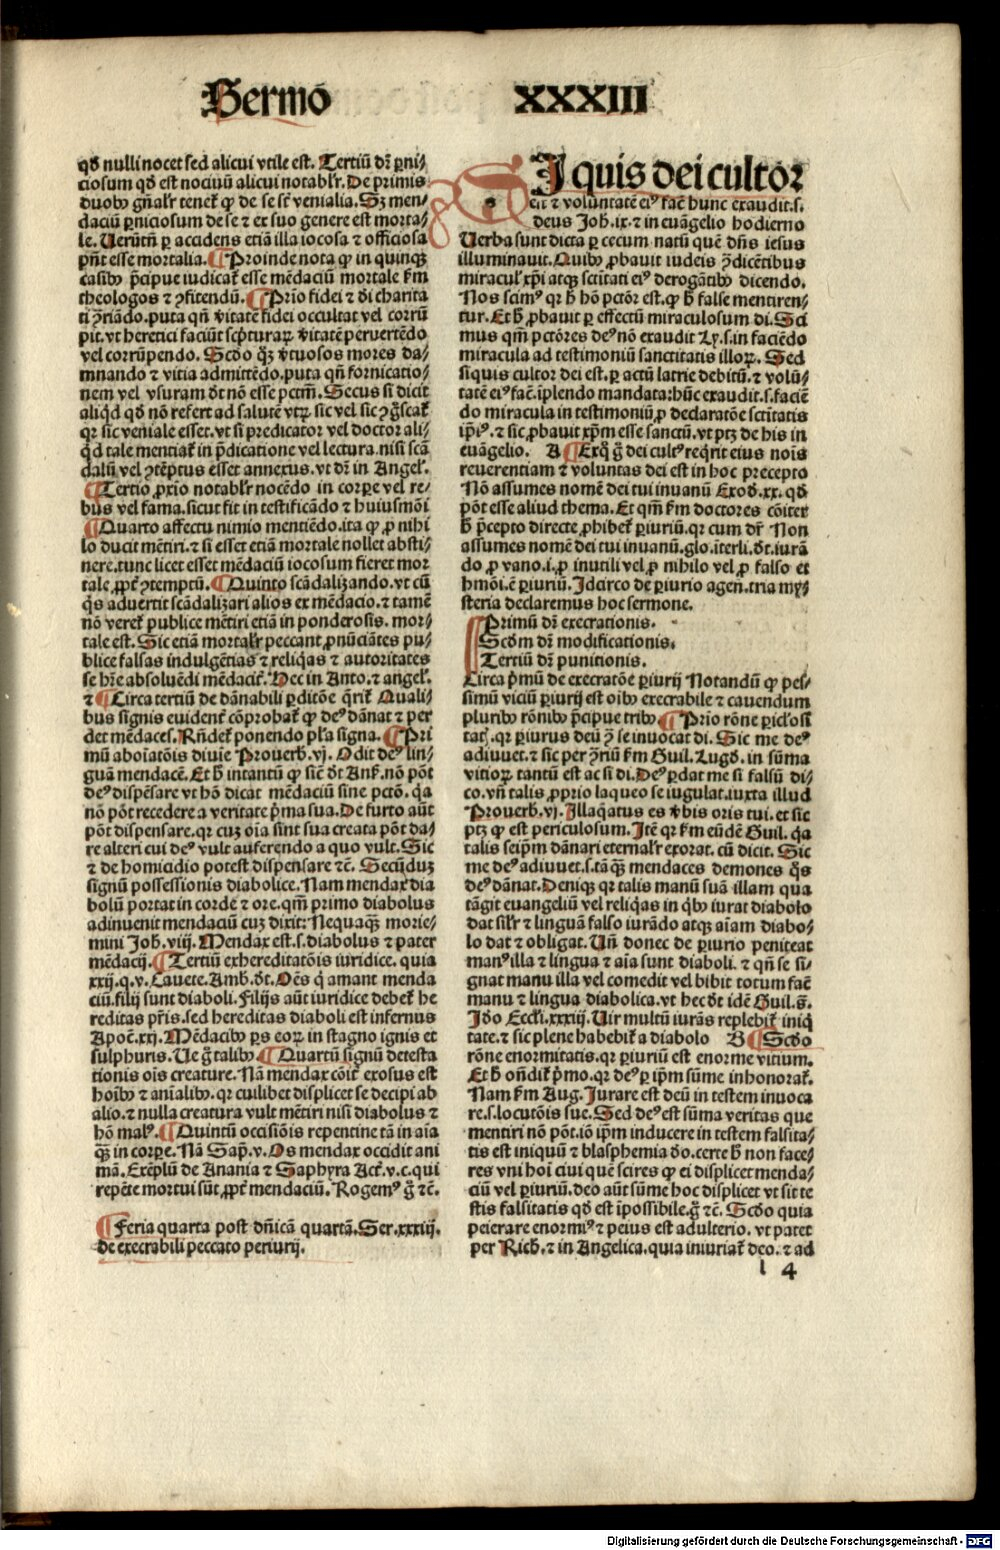 Sermo XXXIII
qđ nulli nocet sed alicui vtile est. Tertiū dr̄ ꝑni⸗
ciosum qđ est nociuū alicui notablr̄. De primis
duob⁹ gn̄alr̄ tenet̄ ꝙ de se sīt venialia. Sꝫ men⸗
daciū ꝑniciosum de se ⁊ ex suo genere est morta⸗
le. Uerūtn̄ ꝑ accidens etiā illa iocosa ⁊ officiosa
pn̄t esse mortalia. ¶ Proinde nota ꝙ in quinqꝫ
casib⁹ p̄cipue iudicat̄ esse mēdaciū mortale ẜm
theologos ⁊ ꝯfitendū. ¶ Prio fidei ⁊ di charita
ti ꝯrīando. puta qn̄ v̄itatē fidei occultat vel corrū
pit. vt heretici faciūt sc̄pturaꝝ v̄itatē pervertēdo
vel corrūpendo. Scđo qꝫ v̄tuosos mores da⸗
mnando ⁊ vitia admittēdo. puta qn̄ fornicatio⸗
nem vel vsuram dt̄ nō esse pctm̄. Secus si dicit
aliqđ qđ nō refert ad salutē vtꝝ sic vel sic ꝯgscat̄
qr sic veniale esset. vt si predicator vel doctor ali⸗
qđ tale mentiat̄ in p̄dicatione vel lectura. nisi scā
dalū vel ꝯtēptus esset annexus. vt dr̄ in Angel̄.
¶ Tertio ꝓxio notablr̄ nocēdo in corꝑe vel re⸗
bus vel fama. sicut fit in testificādo ⁊ huiusmōi
¶ Quarto affectu nimio mentiēdo. ita ꝙ ꝓ nihi
lo ducit mētiri. ⁊ si esset etiā mortale nollet absti⸗
nere. tunc licet esset mēdaciū iocosum fieret mor
tale ꝓpt̄ ꝯtemptū. ¶ Quinto scādalizando. vt cū
qs aduertit scādalizari alios ex mēdacio. ⁊ tamē
nō veret̄ publice mētiri etiā in ponderosis. mor⸗
tale est. Sic etiā mortalr̄ peccant ꝓnūciātes pu⸗
blice falsas indulgētias ⁊ reliqas ⁊ autoritates
se hr̄e absoluēdi mēdacit̄. Hec in Anto. ⁊ angel̄.
⁊ ¶ Circa tertiū de dānabili ꝑditōe qrit̄ Quali⸗
bus signis euident̄ cōprobat̄ ꝙ de⁹ dānat ⁊ per
det mēdaces. Rn̄det̄ ponendo pl̄a signa. ¶ Pri
mū aboiatōis diuie Prouerb. vj. Odit de⁹ lin⸗
guā mendacē. Et ħ intantū ꝙ sicē dt̄ Ank̄. nō pōt
de⁹ dispēsare vt hō dicat mēdaciū sine pctō. qa
nō pōt recedere a veritate p̄ma sua. De furto aūt
pōt dispensare. qr cuꝫ oīa sint sua creata pōt da⸗
re alteri cui de⁹ vult auferendo a quo vult. Sic
⁊ de homicidio potest dispensare ⁊c̄. Secūduꝫ
signū possessionis diabolice. Nam mendax dia
bolū portat in corde ⁊ ore. qm̄ primo diabolus
adinuenit mendaciū cuꝫ dixit: Nequaqꝫ morie⸗
mini Joh. viij. Mendax est. s. diabolus ⁊ pater
mēdacij. ¶ Tertiū exhereditatōis iuridice. quia
xxij. q. v. Cauete. Amb. dt̄. Oēs q̄ amant menda
ciū. filij sunt diaboli. Filijs aūt iuridice debet̄ he
reditas pr̄is. sed hereditas diaboli est infernus
Apoc̄. xxj. Mēdacib⁹ ꝑs eoꝝ in stagno ignis et
sulphuris. Ue g̊ talib⁹. ¶ Quartū signū detesta
tionis ois creature. Nā mendax cōit̄ exosus est
hoīb⁹ ⁊ anīalib⁹. qr cuilibet displicet se decipi ab
alio. ⁊ nulla creatura vult mētiri nisi diabolus ⁊
hō mal⁹. ¶ Quintū occisiōis repentine tā in aīa
qꝫ in corꝑe. Nā Sap. v. Os mendax occidit ani
mā. Exēplū de Anania ⁊ Saphyra Act̄. v. c. qui
repēte mortui sūt ꝓpt̄ mendaciū. Rogem⁹ g̊ ⁊c̄.
¶ Feria quarta post dn̄icā quartā. Ser. xxxiij.
de execrabili peccato periurij.
SJ quis dei cultor
eīt ⁊ voluntatē ei⁹ fac̄ hunc exaudit. s.
deus Joh. ix. ⁊ in euāgelio hodierno
Uerba sunt dicta ꝑ cecum natū quē dn̄s iesus
illuminauit. Quib⁹ ꝓbauit iudeis ꝯdicētibus
miracul̄ xp̄i atqꝫ sctitati ei⁹ derogātib⁹ dicendo.
Nos scim⁹ qr ħ hō pctōr est. ꝙ ħ false mentiren⸗
tur. Et ħ ꝓbauit ꝑ effectū miraculosum di. Sci
mus qm̄ pctōres de⁹ nō exaudit ⁊ꝝ. s. in faciēdo
miracula ad testimoniū sanctitatis illoꝝ. Sed
siquis cultor dei est. ꝑ actū latrie debitū. ⁊ volū⸗
tatē ei⁹ fac̄. īplendo mandata: hūc exaudit. s. faciē
do miracula in testimoniū ꝓ declaratōe sctitatis
ip̄i⁹. ⁊ sic ꝓbauit xp̄m esse sanctū. vt ptꝫ de his in
euāgelio. A ¶ Exq̊ g̊ dei cult⁹ reqrit eius nois
reuerentiam ⁊ voluntas dei est in hoc precepto
Nō assumes nomē dei tui inuanū Exod. xx. qđ
pōt esse aliud thema. Et qm̄ ẜm doctores cōiter
ħ p̄cepto directe ꝓhibet̄ ꝑiuriū. qr cum dr̄ Non
assumes nomē dei tui inuanū. glo. īterli. dt̄. iurā
do ꝓ vano. i. ꝓ inutili vel ꝓ nihilo vel ꝓ falso et
hmōi. ē ꝑiuriū. Jdcirco de ꝑiurio agen. tria my⸗
steria declaremus hoc sermone.
Primū dr̄ execrationis.
Scđm dr̄ modificationis.
Tertiū dr̄ punitionis.
Circa p̄mū de execratōe ꝑiurij Notandū ꝙ pes⸗
simū viciū ꝑiurij est oīb⁹ execrabile ⁊ cauendum
plurib⁹ rōnib⁹ p̄cipue trib⁹ ¶ Prio rōne ꝑicl̄osi
tat. qr ꝑiurus deū ꝯ se inuocat di. Sic me de⁹
adiuuet. ⁊ sic per ꝯriū ẜm Guil. Lugđ. in sūma
vitioꝝ tantū est ac si di. De⁹ ꝑdat me si falsū di⸗
co. vn̄ talis ꝓprio laqueo se iugulat. iuxta illud
Prouerb. vj. Illaqatus es v̄bis oris tui. et sic
ptꝫ ꝙ est periculosum. Jtē qr ẜm eūdē Guil. qa
talis seip̄m dānari eternalr̄ exorat. cū dicit. Sic
me de⁹ adiuuet. s. tāqꝫ mendaces demones qs
de⁹ dānat. Deniqꝫ qr talis manū suā illam qua
tāgit euangeliū vel reliqas in qb⁹ iurat diabolo
dat silr̄ ⁊ linguā falso iurādo atqꝫ aīam diabo⸗
lo dat ⁊ obligat. Un̄ donec de ꝑiurio peniteat
man⁹ illa ⁊ lingua ⁊ aīa sunt diaboli. ⁊ qn̄ se si⸗
gnat manu illa vel comedit vel bibit totum fac̄
manu ⁊ lingua diabolica. vt hec dt̄ idē Guil. g̊.
Jđo Eccl̄i. xxxiij. Uir multū iurās replebit̄ iniq̄
tate. ⁊ sic plene habebit̄ a diabolo B ¶ Scđo
rōne enormitatis. qr ꝑiuriū est enorme vitium.
Et ħ on̄dit̄ p̄mo. qr de⁹ ꝑ ip̄m sūme inhonorat̄.
Nam ẜm Aug. Jurare est deū in testem inuoca
re. s. locutōis sue. Sed de⁹ est sūma veritas que
mentiri nō pōt. iō ip̄m inducere in testem falsita⸗
tis est iniquū ⁊ blasphemia đo. certe ħ non face⸗
res vni hoi ciui quē scires ꝙ ei displicet menda⸗
ciū vel ꝑiuriū. deo aūt sūme hoc displicet vt sit te
stis falsitatis qđ est īpossibile. g̊ ⁊c̄. Scđo quia
peierare enormi⁹ ⁊ peius est adulterio. vt patet
per Rich. ⁊ in Angelica. quia iniuriat̄ deo. ⁊ ad
l 4
Digitalisierung gefördert durch die Deutsche Forschungsgemeinschaft - DFG